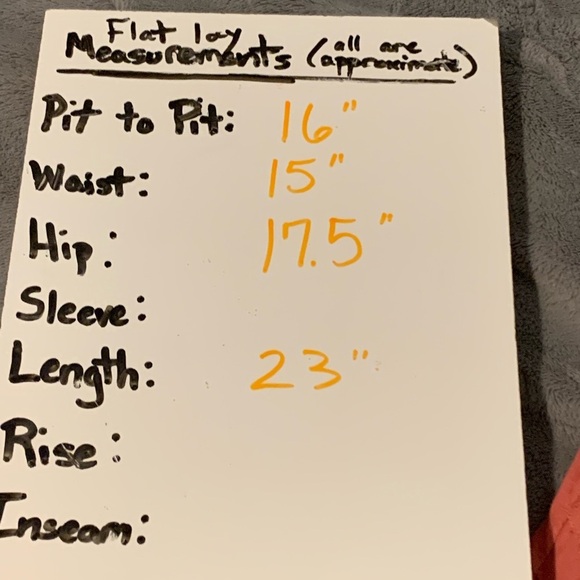 Flat lay
Measurements (all are approximate)
Pit to Pit: 16"
Waist: 15"
Hip: 17.5"
Sleeve:
Length: 23"
Rise:
Inseam: